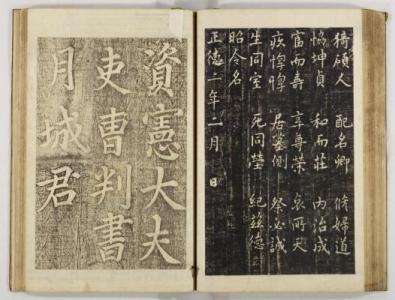 猗碩人 配名卿 修婦道
協坤貞 和而莊 內治成
富而壽 享尊榮 哀所天
疚惸惸 居墓側 祭必誠
生同室 死同塋 紀茲德
昭令名
正德二年二月 日
資憲大夫
吏曹判書
月城君